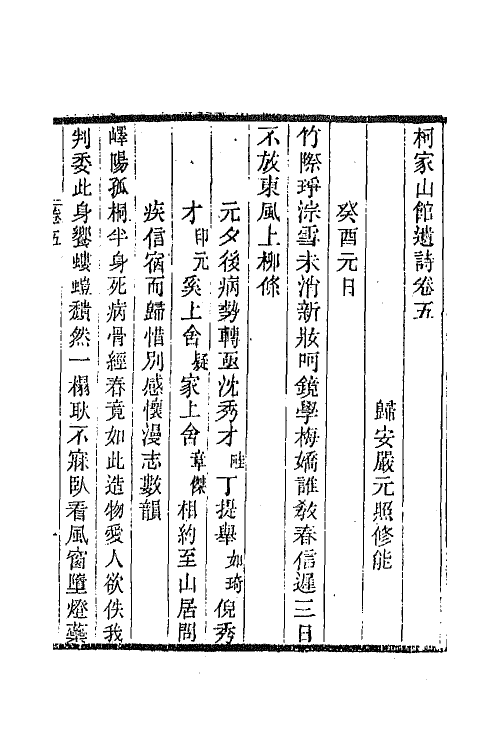 柯家山館遺詩卷五
歸安嚴元照修能
癸酉元日
竹際琤淙雪未消新妝呵鏡學梅嬌誰教春信遲三日
不放東風上柳條
元夕後病勢轉亟沈秀才丁提舉如琦倪秀
才印元奚上舍疑家上舍章傑相約至山居問
疾信宿而歸惜別感懷漫志數韻
嶧陽孤桐半身死病骨經春竟如此造物愛人欲佚我
判委此身饗螻螘穨然一榻耿不寐臥看風窗墮燈蘂
卷五
一